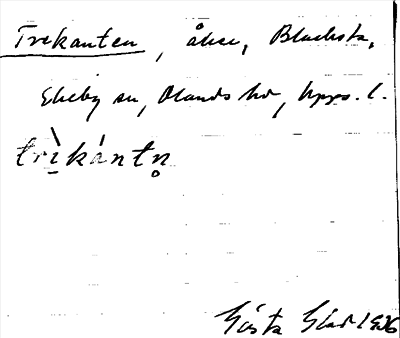 Trekanten, åker, Blacksta,
Ekeby sn, Olands hd, Upps. l.
trìkántn̥
Gösta